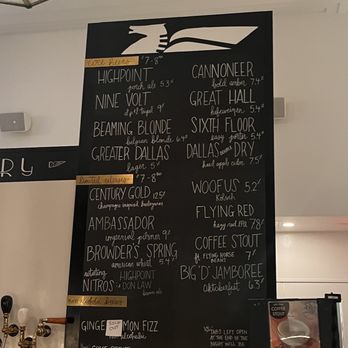 core beers $7-8
HIGHPOINT
porch ale 5.3
NINE VOLT
9
BEAMING BLONDE
belgian blonde 6.4
GREATER DALLAS
lager 5
limited releases $7-8
CENTURY GOLD 12.5
champagne inspired
AMBASSADOR
imperial pilsner 9
BROWDER'S SPRING
american wheat 5.4
rotating HIGHPOINT
NITROS DON LAW
brown ale
non-alcoholic
GINGE MON FIZZ
SOLD OUT
CANNONEER
amber 7.4
GREAT HALL
hefeweizen
SIXTH FLOOR
easy porter 5.4
DALLAS DRY
hard apple cider 7.5
WOOFUS 5.2
Kolsch
FLYING RED
hazy red IPA 7.8
COFFEE STOUT
ft FLYING HORSE
BIG "D" JAMBOREE
Oktoberfest 6.3
TABS LEFT OPEN
AT THE END OF
THE NIGHT WILL BE
RY
COFFEE
STOUT